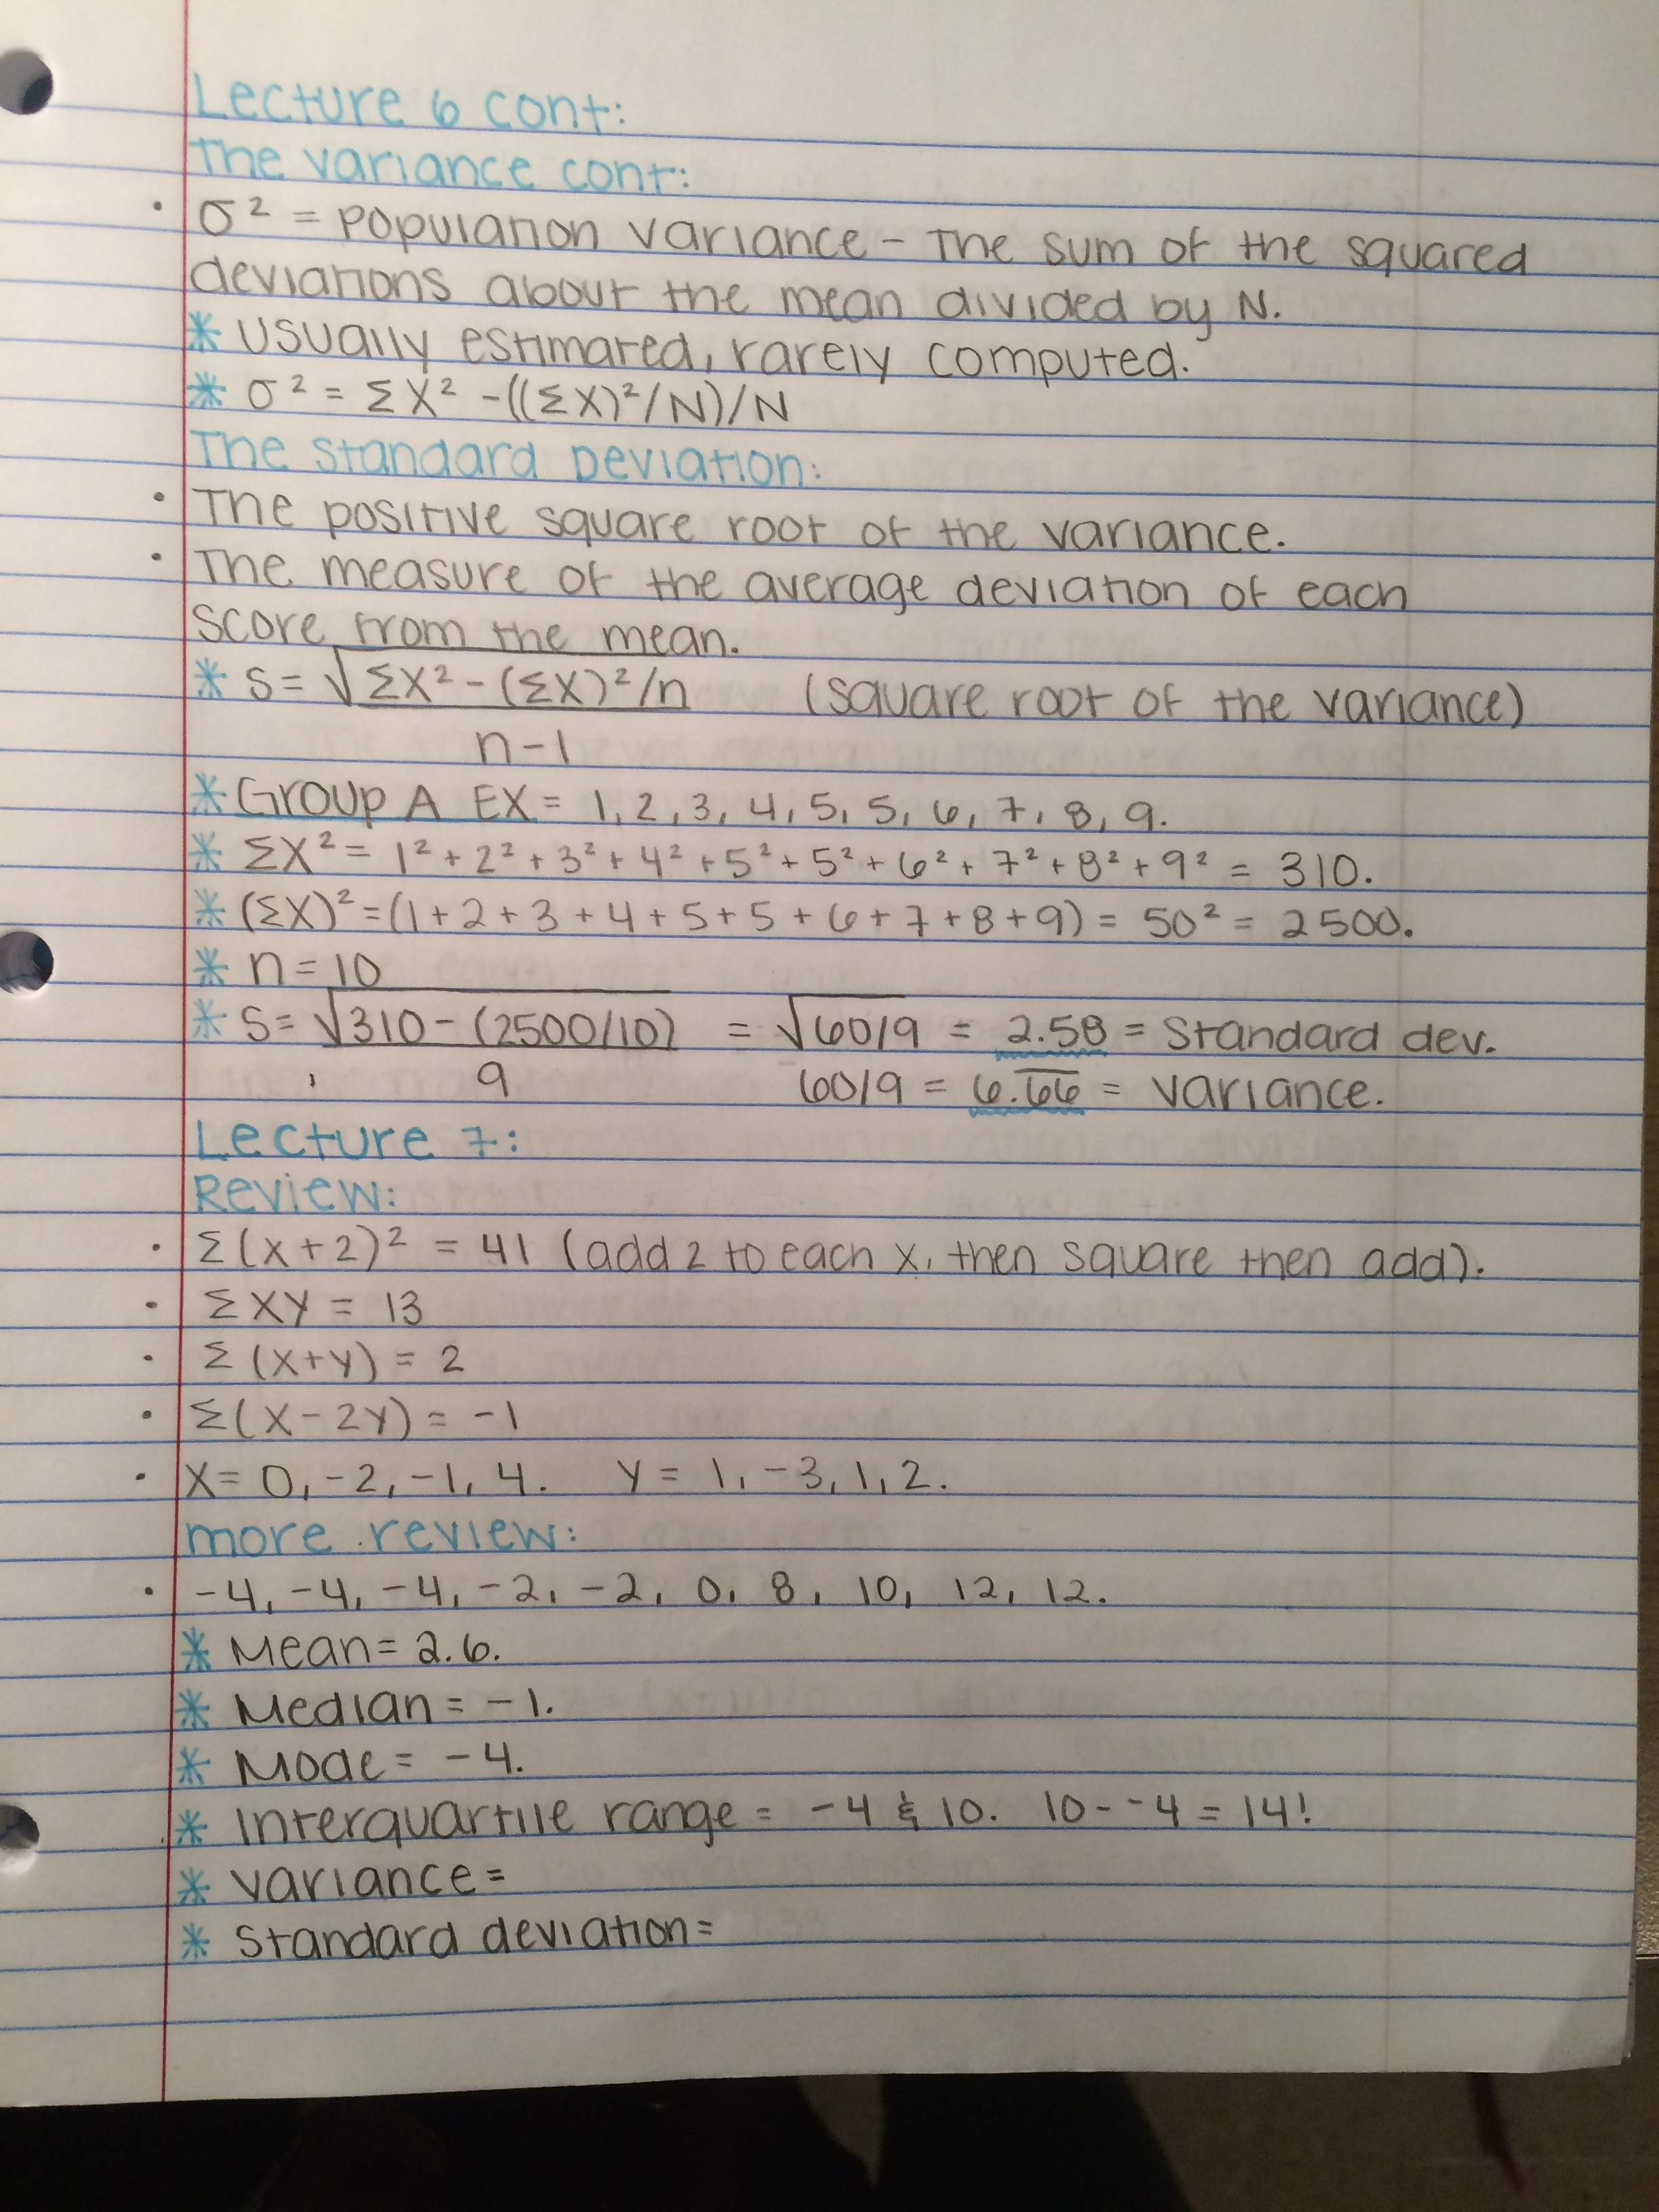 Lecture 6 cont:
The variance cont:
• σ² = population variance – The sum of the squared
deviations about the mean divided by N.
* usually estimated, rarely computed.
* σ² = ΣX² -((ΣX)²/N)/N
The Standard Deviation:
• The positive square root of the variance.
• The measure of the average deviation of each
score from the mean.
* S= √ΣX² - (ΣX)²/n (square root of the variance)
n-1
* Group A EX = 1, 2, 3, 4, 5, 5, 6, 7, 8, 9.
* ΣX² = 1² + 2² + 3² + 4² + 5² + 5² + 6² + 7² + 8² + 9² = 310.
* (ΣX)² = (1+2+3+4+5+5+6+7+8+9) = 50² = 2500.
* n = 10
* S= √310 - (2500/10) = √60/9 = 2.58 = Standard dev.
9 60/9 = 6.66 = variance.
Lecture 7:
Review:
• Σ(x+2)² = 41 (add 2 to each x, then square then add).
• ΣXY = 13
• Σ(X+Y) = 2
• Σ(X-2Y) = -1
• X= 0, -2, -1, 4. Y = 1, -3, 1, 2.
more review:
• -4, -4, -4, -2, -2, 0, 8, 10, 12, 12.
* Mean= 2.6.
* Median = -1.
* Mode = -4.
* Interquartile range = -4 & 10. 10 - -4 = 14!
* variance =
* Standard deviation =